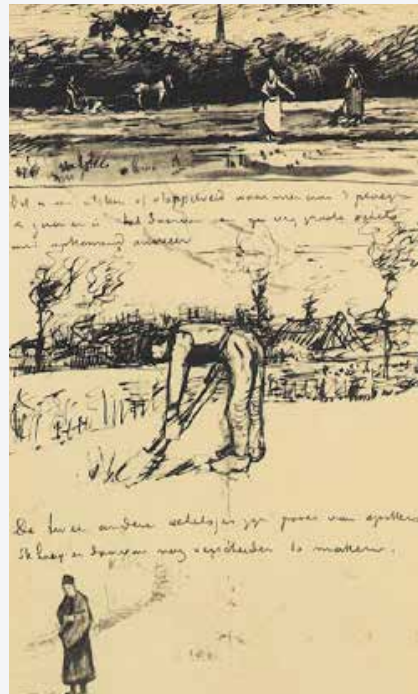 is een akker of stoppelveld waar men aan 't ploegen
zaaien is heb daarvan een vrij groote schets
met opkomend onweer
De twee andere schetsjes zijn poses van spitters
Ik hoop er daarvan nog verscheiden te maken.